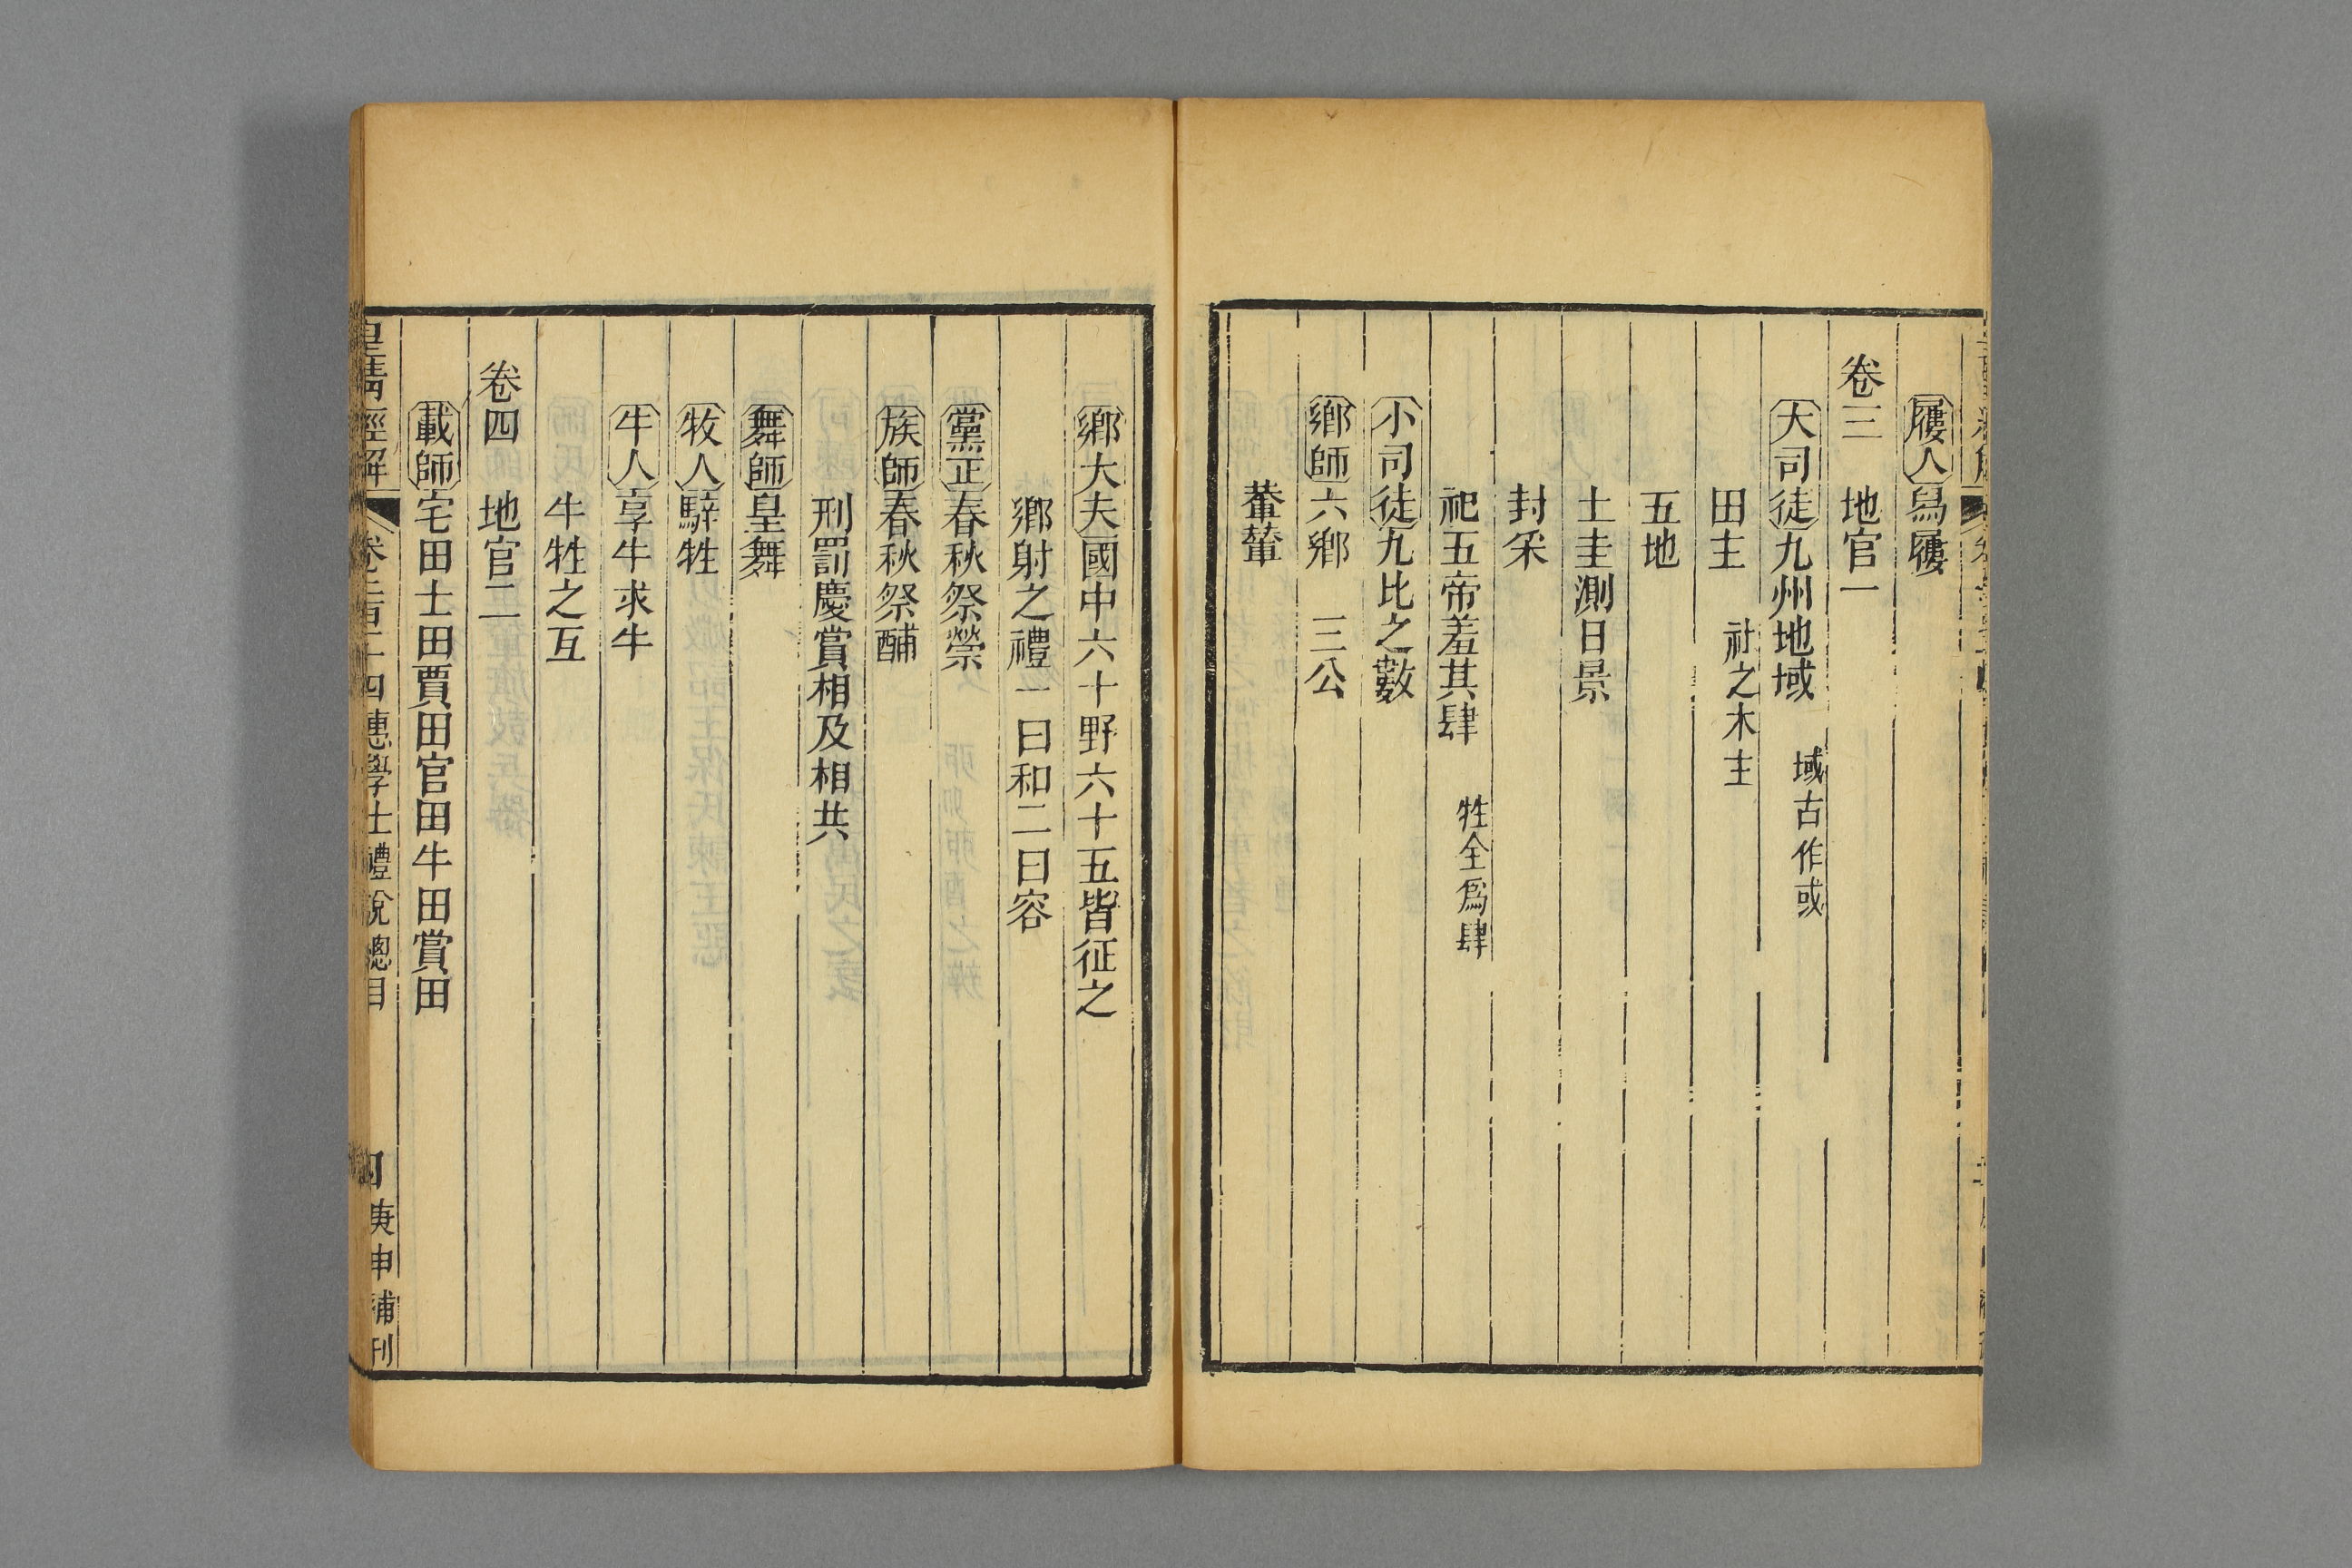 屨人舄屨
卷三　地官一
大司徒九州地域　域古作或
田主　社之木主
五地
土圭測日景
封采
祀五帝羞其肆　牲全爲肆
小司徒九比之數
鄉師六鄉　三公
輂輦
鄉大夫國中六十野六十五皆征之
鄉射之禮一曰和二曰容
黨正春秋祭禜
族師春秋祭酺
刑罰慶賞相及相共
舞師皇舞
牧人騂牲
牛人享牛求牛
牛牲之互
卷四　地官二
載師宅田士田賈田官田牛田賞田
皇清經解　卷二百十四惠學士禮說總目　四　庚申補刊